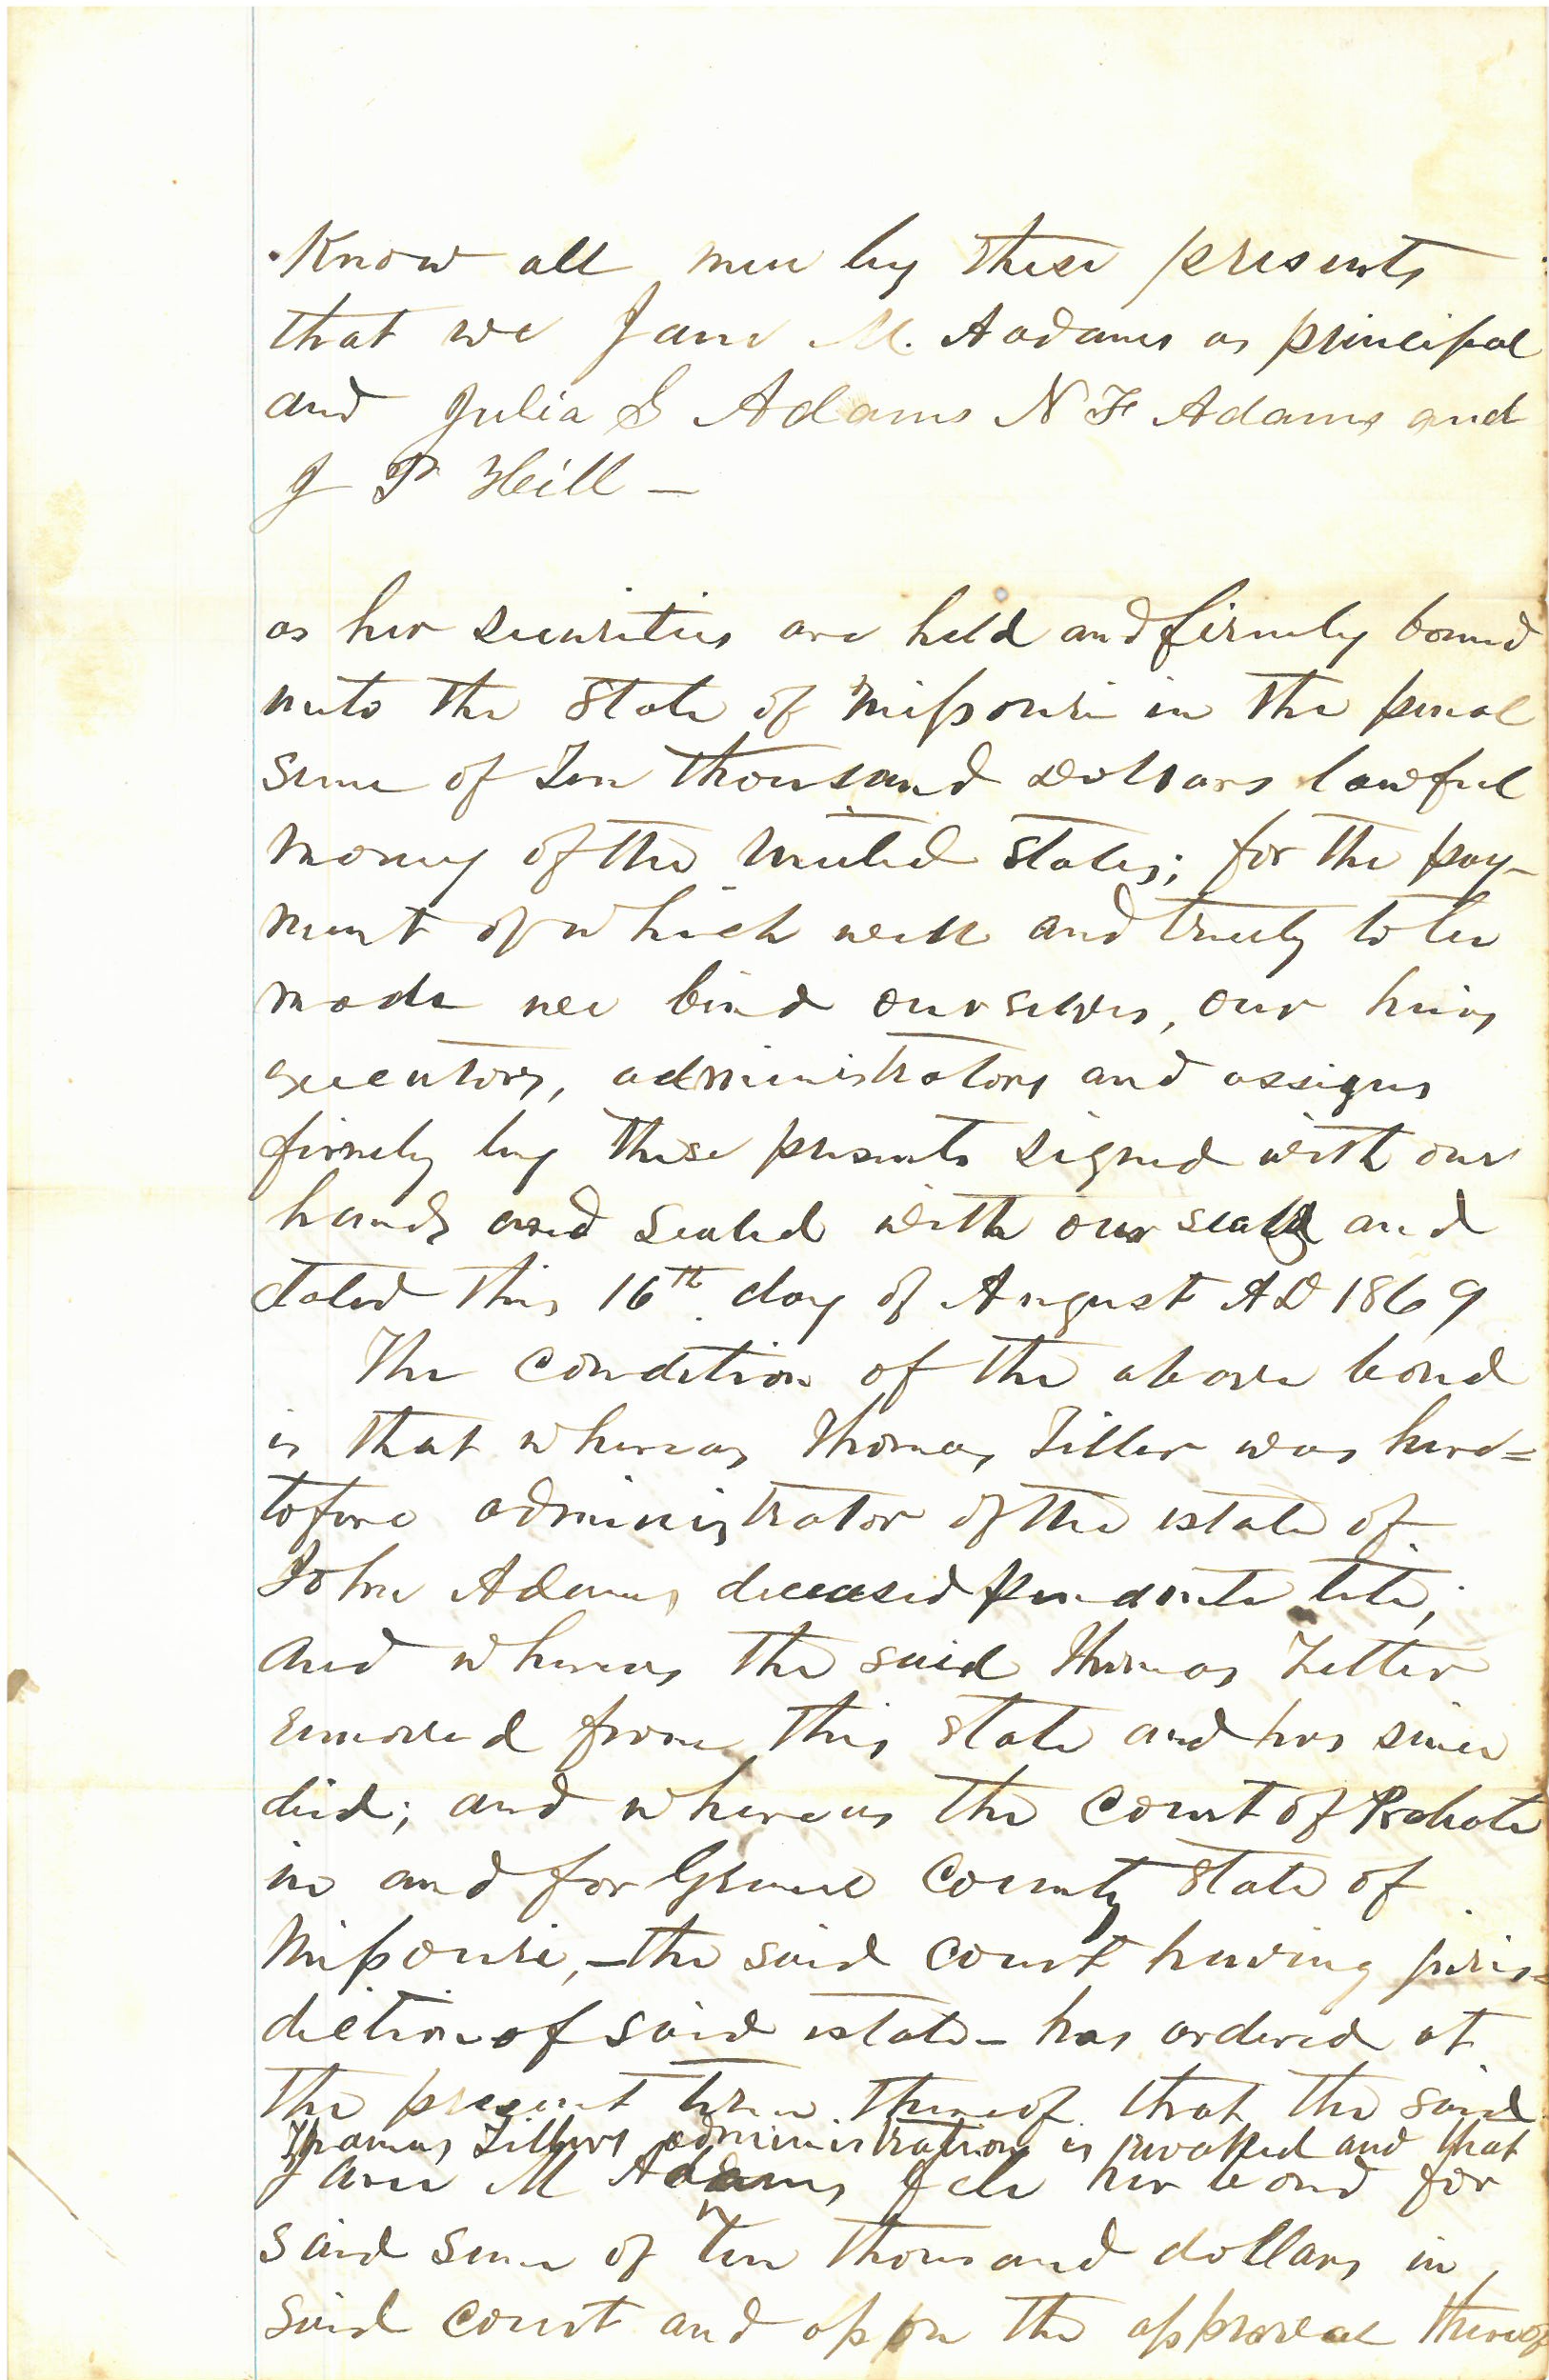 Know all men by these presents
that we Jane M. Aadams as principal
and Julia G Adams N F Adams and
J P Hill —
as her securities are held and firmly bound
unto the State of Missouri in the penal
sum of Ten thousand dollars lawful
money of the United States; for the pay-
ment of which well and truely to be
made we bind ourselves, our heirs
executors, administrators and assigns
firmly by these presents signed with our
hands and sealed with our seals and
dated this 16th day of August AD 1869
The condition of the above bond
is that whereas Thomas Tiller was here=
tofore administrator of the estate of
John Adams deceased pendente lite;
and whereas the said Thomas Tiller
removed from this state and has since
died; and whereas the Court of Probate
in and for Greene County State of
Missouri,—the said court having juris=
diction of said estate— has ordered at
the present term thereof that the said
Thomas Tillers administration is revoked and that
Jane M Adams file her bond for
said sum of ten thousand dollars in
said court and uppon the approval thereof